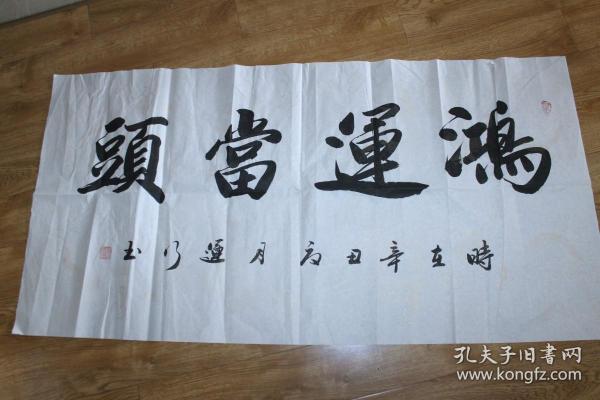 鴻運當頭
時在辛丑初月運行书
孔夫子旧書网
www.kongfz.com